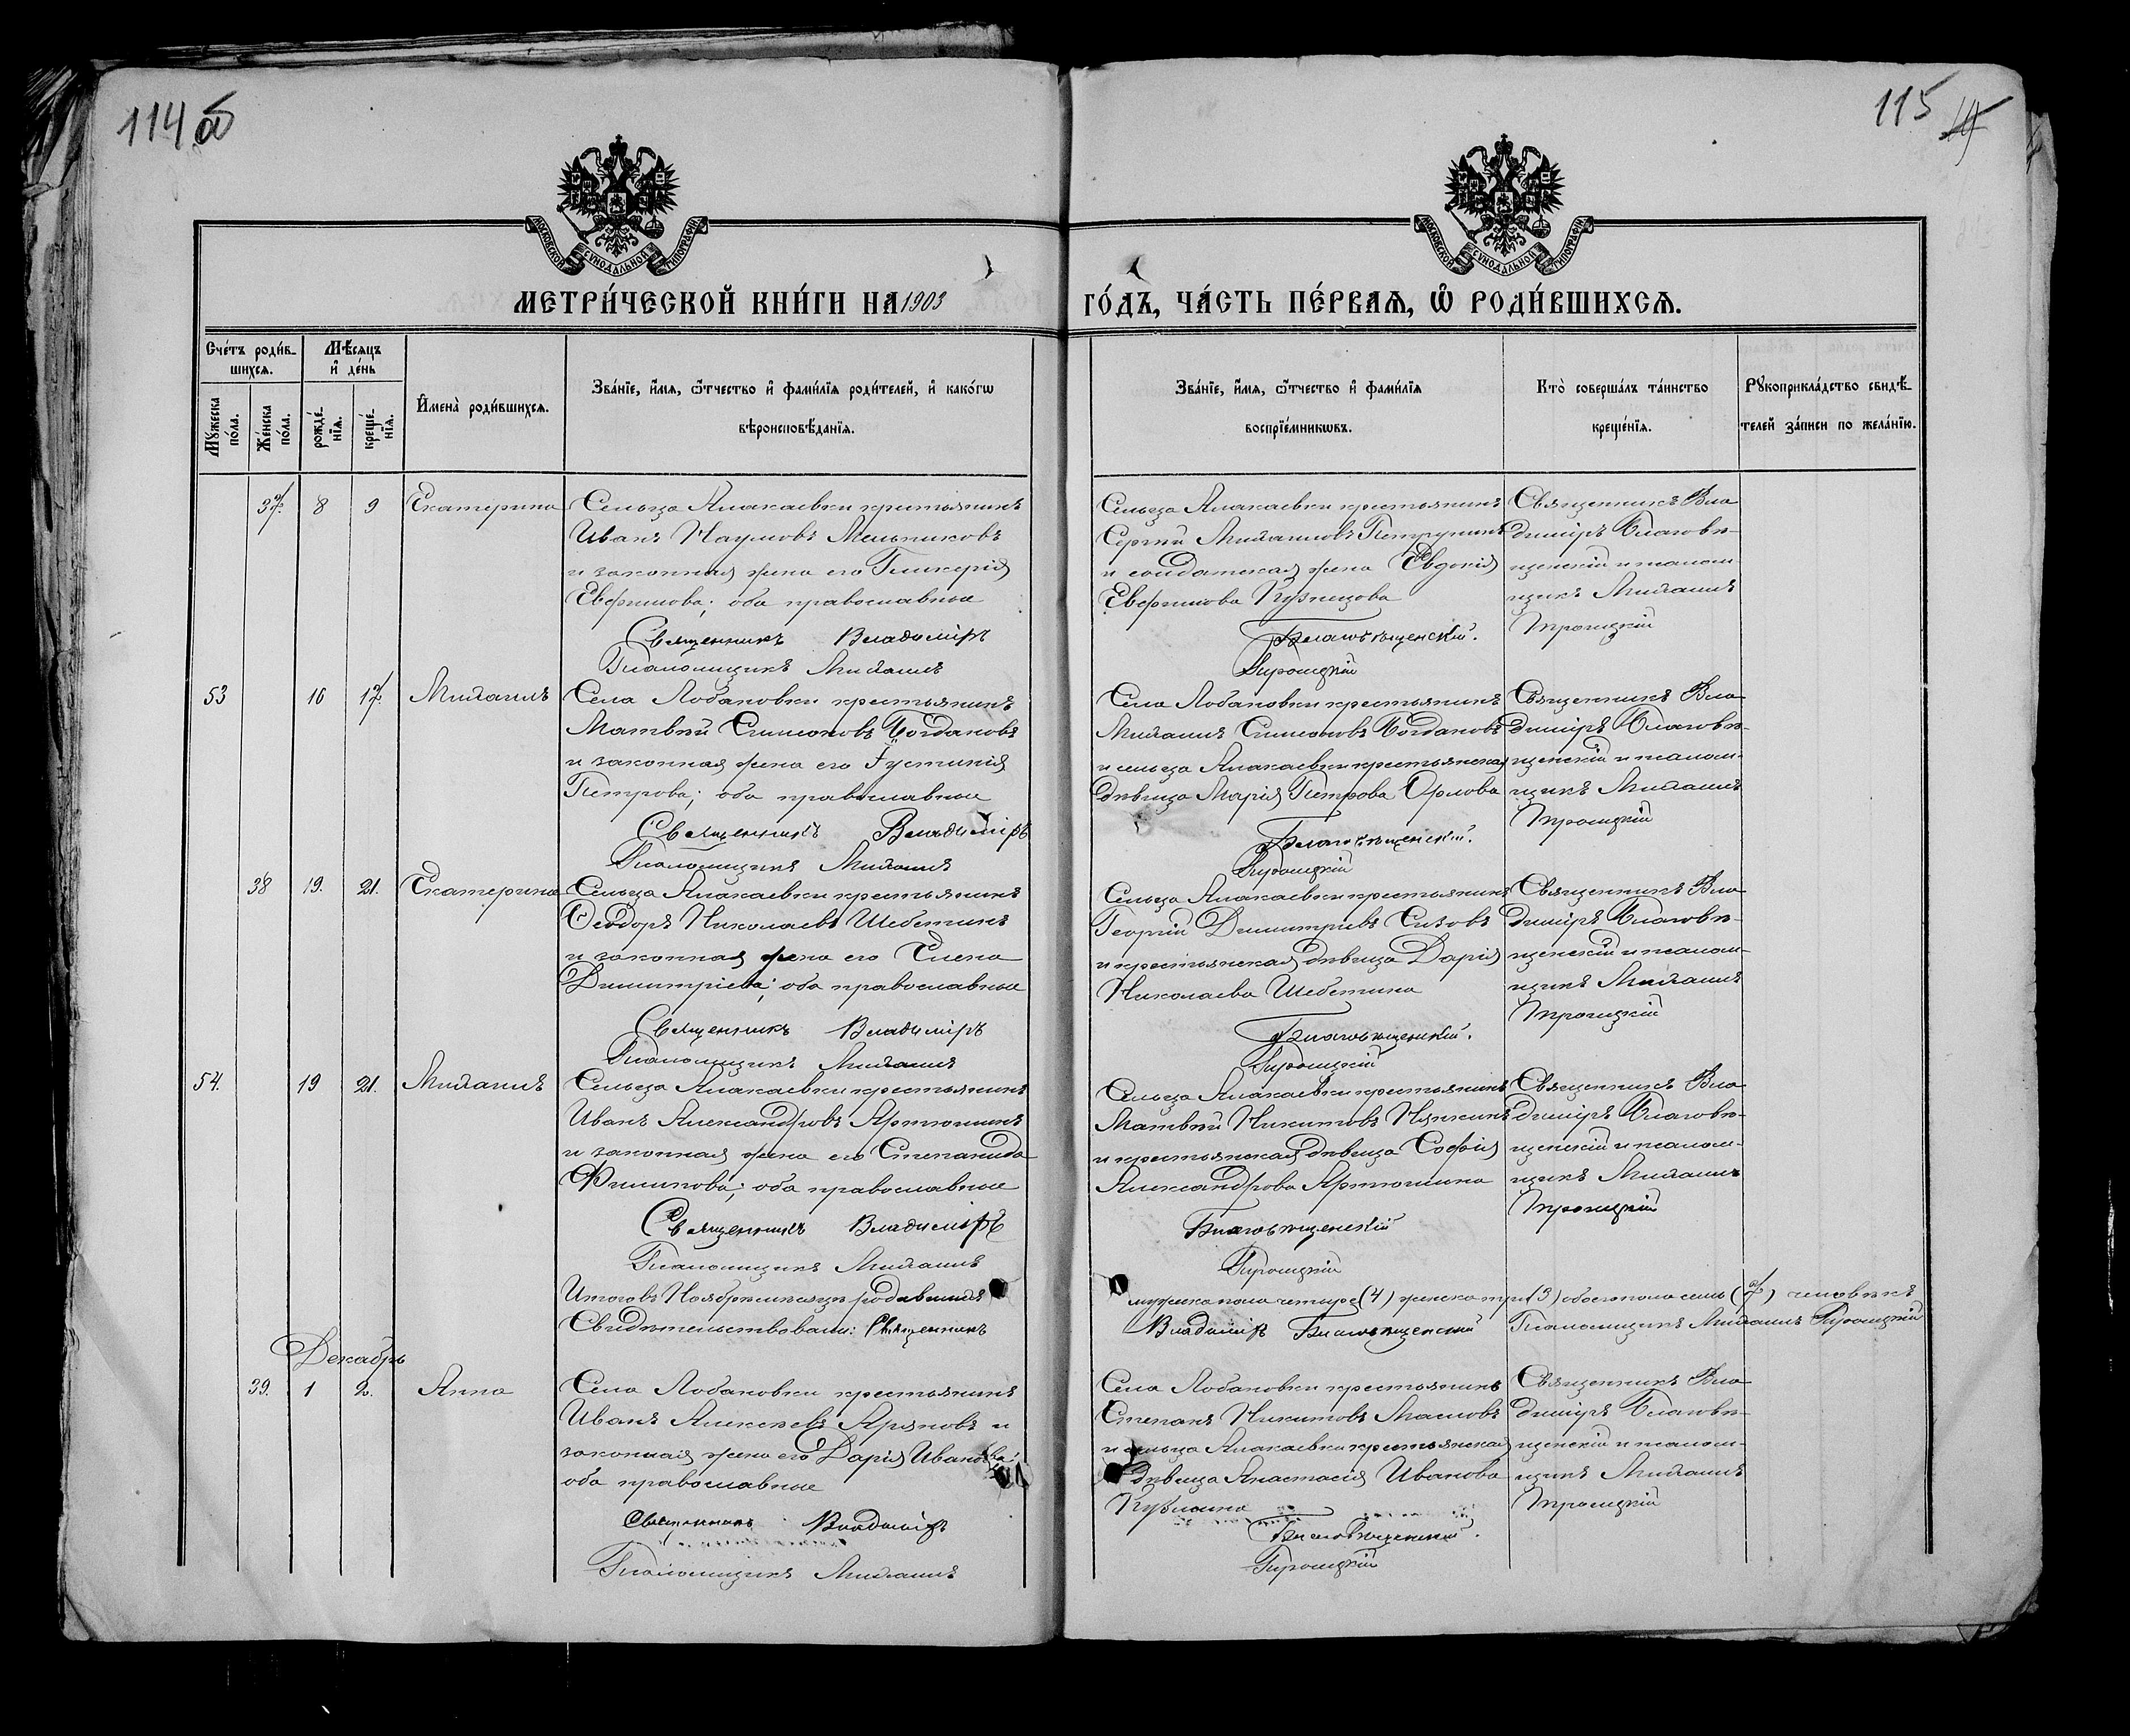 114 об
115
МОСКОВСКОЙ СѴНОДАЛЬНОЙ ТИПОГРАФІИ
МОСКОВСКОЙ СѴНОДАЛЬНОЙ ТИПОГРАФІИ
МЕТРИ́ЧЕСКОЙ КНИ́ГИ НА 1903
ГО́ДЪ, ЧА́СТЬ ПЕ́РВАѦ, Ѽ РОДИ́ВШИХСѦ.
Сче́тъ роди́в-
шихсѧ.
Мѣ́сѧцъ
и҆ де́нь
Мꙋ́жеска
по́ла.
Же́нска
по́ла.
рожде́-
нїѧ.
креще́-
нїѧ.
И҆мена̀ роди́вшихсѧ.
Зва́нїе, и҆́мѧ, ѻ҆́тчество и҆ фами́лїѧ роди́телей, и҆ како́гѡ
вѣроисповѣ́данїѧ.
Зва́нїе, и҆́мѧ, ѻ҆́тчество и҆ фами́лїѧ
воспрїе́мникѡвъ.
Кто̀ соверша́лъ та́инство
креще́нїѧ.
Рꙋкоприкла́дство свидѣ́-
телей за́писи по жела́нїю.
37. 8 9 Екатерина
Сельца Алакаевки крестьянинъ
Иванъ Наумовъ Мельниковъ
и законная жена его Гликерія
Евфимова; оба православные
Священникъ Владиміръ
Псаломщикъ Михаилъ
Сельца Алакаевки крестьянинъ
Сергій Михаиловъ
и солдатская жена Евдокія
Евфимова Кузнецова
Благовѣщенскій.
Троицкій
Священникъ Вла-
диміръ Благовѣ-
щенскій и псалом-
щикъ Михаилъ
Троицкій
53 16 17. Михаилъ
Села Лобановки крестьянинъ
Матвѣй Симеоновъ Богдановъ
и законная жена его Іустинія
Петрова; оба православные
Священникъ Владиміръ
Псаломщикъ Михаилъ
Села Лобановки крестьянинъ
Михаилъ Симеоновъ Богдановъ
и сельца Алакаевки крестьянская
дѣвица Марія Петрова Орлова
Благовѣщенскій.
Троицкій
Священникъ Вла-
диміръ Благовѣ-
щенскій и псалом-
щикъ Михаилъ
Троицкій
38 19. 21. Екатерина
Сельца Алакаевки крестьянинъ
Ѳеодоръ Николаевъ Шебетинъ
и законная жена его Елена
Димитріева; оба православные
Священникъ Владиміръ
Псаломщикъ Михаилъ
Сельца Алакаевки крестьянинъ
Георгій Димитріевъ Сизовъ
и крестьянская дѣвица Дарія
Николаева Шебетина
Благовѣщенскій.
Троицкій
Священникъ Вла-
диміръ Благовѣ-
щенскій и псалом-
щикъ Михаилъ
Троицкій
54. 19 21. Михаилъ
Сельца Алакаевки крестьянинъ
Иванъ Александровъ Артюшинъ
и законная жена его Степанида
Филипова; оба православные
Священникъ Владиміръ
Псаломщикъ Михаилъ
Сельца Алакаевки крестьянинъ
Матвѣй Никитовъ
и крестьянская дѣвица Софія
Александрова Артюшина
Благовѣщенскій
Троицкій
Священникъ Вла-
диміръ Благовѣ-
щенскій и псалом-
щикъ Михаилъ
Троицкій
Итого въ Ноябрѣ мѣсяцѣ родившихся
мужска пола четыре (4) женска три (3) обоего пола семь (7) человѣкъ
Свидѣтельствовали: Священникъ
Владиміръ Благовѣщенскій Псаломщикъ Михаилъ Троицкій
Декабрь
39. 1 2. Анна
Села Лобановки крестьянинъ
Иванъ Алексѣевъ Аряповъ и
законная жена его Дарія Иванова
оба православные
Священникъ Владиміръ
Псаломщикъ Михаилъ
Села Лобановки крестьянинъ
Степанъ Никитовъ Масловъ
и сельца Алакаевки крестьянская
дѣвица Анастасія Иванова
Кузмина
Благовѣщенскій.
Троицкій
Священникъ Вла-
диміръ Благовѣ-
щенскій и псалом-
щикъ Михаилъ
Троицкій